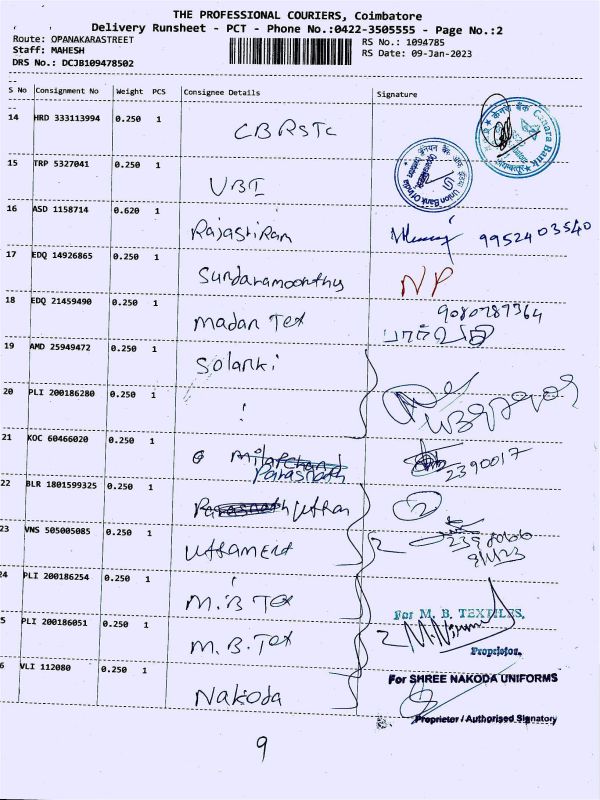 THE PROFESSIONAL COURIERS, Coimbatore
Delivery Runsheet - PCT - Phone No.:0422-3505555 - Page No.:2
Route: OPANAKARASTREET
RS No.: 1094785
Staff: MAHESH
RS Date: 09-Jan-2023
DRS No.: DCJB109478502
S No Consignment No Weight PCS Consignee Details Signature
14 HRD 333113994 0.250 1 CBRSTC
Canara Bank
15 TRP 5327041 0.250 1 UBI
Union Bank Of India
16 ASD 1158714 0.620 1 Rajasriram
9952403540
17 EDQ 14926865 0.250 1 Sundaramoorthy NP
18 EDQ 21459490 0.250 1 Madan Tex
9080787364
19 AMD 25949472 0.250 1 Solanki
20 PLI 200186280 0.250 1 "
21 KOC 60466020 0.250 1
Parasnath
2390017
22 BLR 1801599325 0.250 1
2
23 VNS 505005085 0.250 1
2
9/1/23
24 PLI 200186254 0.250 1 M.B Tex
For M. B. TEXTILES,
25 PLI 200186051 0.250 1 M.B.Tex
2
Proprietor.
26 VLI 112080 0.250 1 Nakoda
For SHREE NAKODA UNIFORMS
Proprietor / Authorised Signatory
9